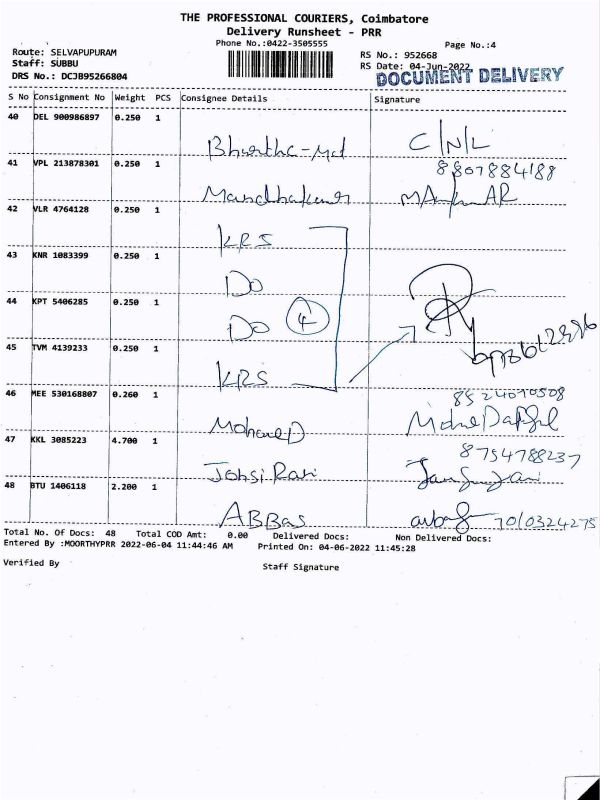 THE PROFESSIONAL COURIERS, Coimbatore
Delivery Runsheet - PRR
Phone No.:0422-3505555
Page No.:4
Route: SELVAPUPURAM
RS No.: 952668
Staff: SUBBU
RS Date: 04-Jun-2022
DRS No.: DCJB95266804
DOCUMENT DELIVERY
S No Consignment No Weight PCS Consignee Details Signature
40 DEL 900986897 0.250 1
C/N/L
41 VPL 213878301 0.250 1
8807884188
42 VLR 4764128 0.250 1
KRS
43 KNR 1083399 0.250 1
Do
44 KPT 5406285 0.250 1
Do 4
45 TVM 4139233 0.250 1
KRS
46 MEE 530168807 0.260 1
8524070508
47 KKL 3085223 4.700 1
8754788237
Johsi Rani
48 BTU 1406118 2.200 1
ABBas 7010324275
Total No. Of Docs: 48 Total COD Amt: 0.00 Delivered Docs: Non Delivered Docs:
Entered By :MOORTHYPRR 2022-06-04 11:44:46 AM Printed On: 04-06-2022 11:45:28
Verified By
Staff Signature